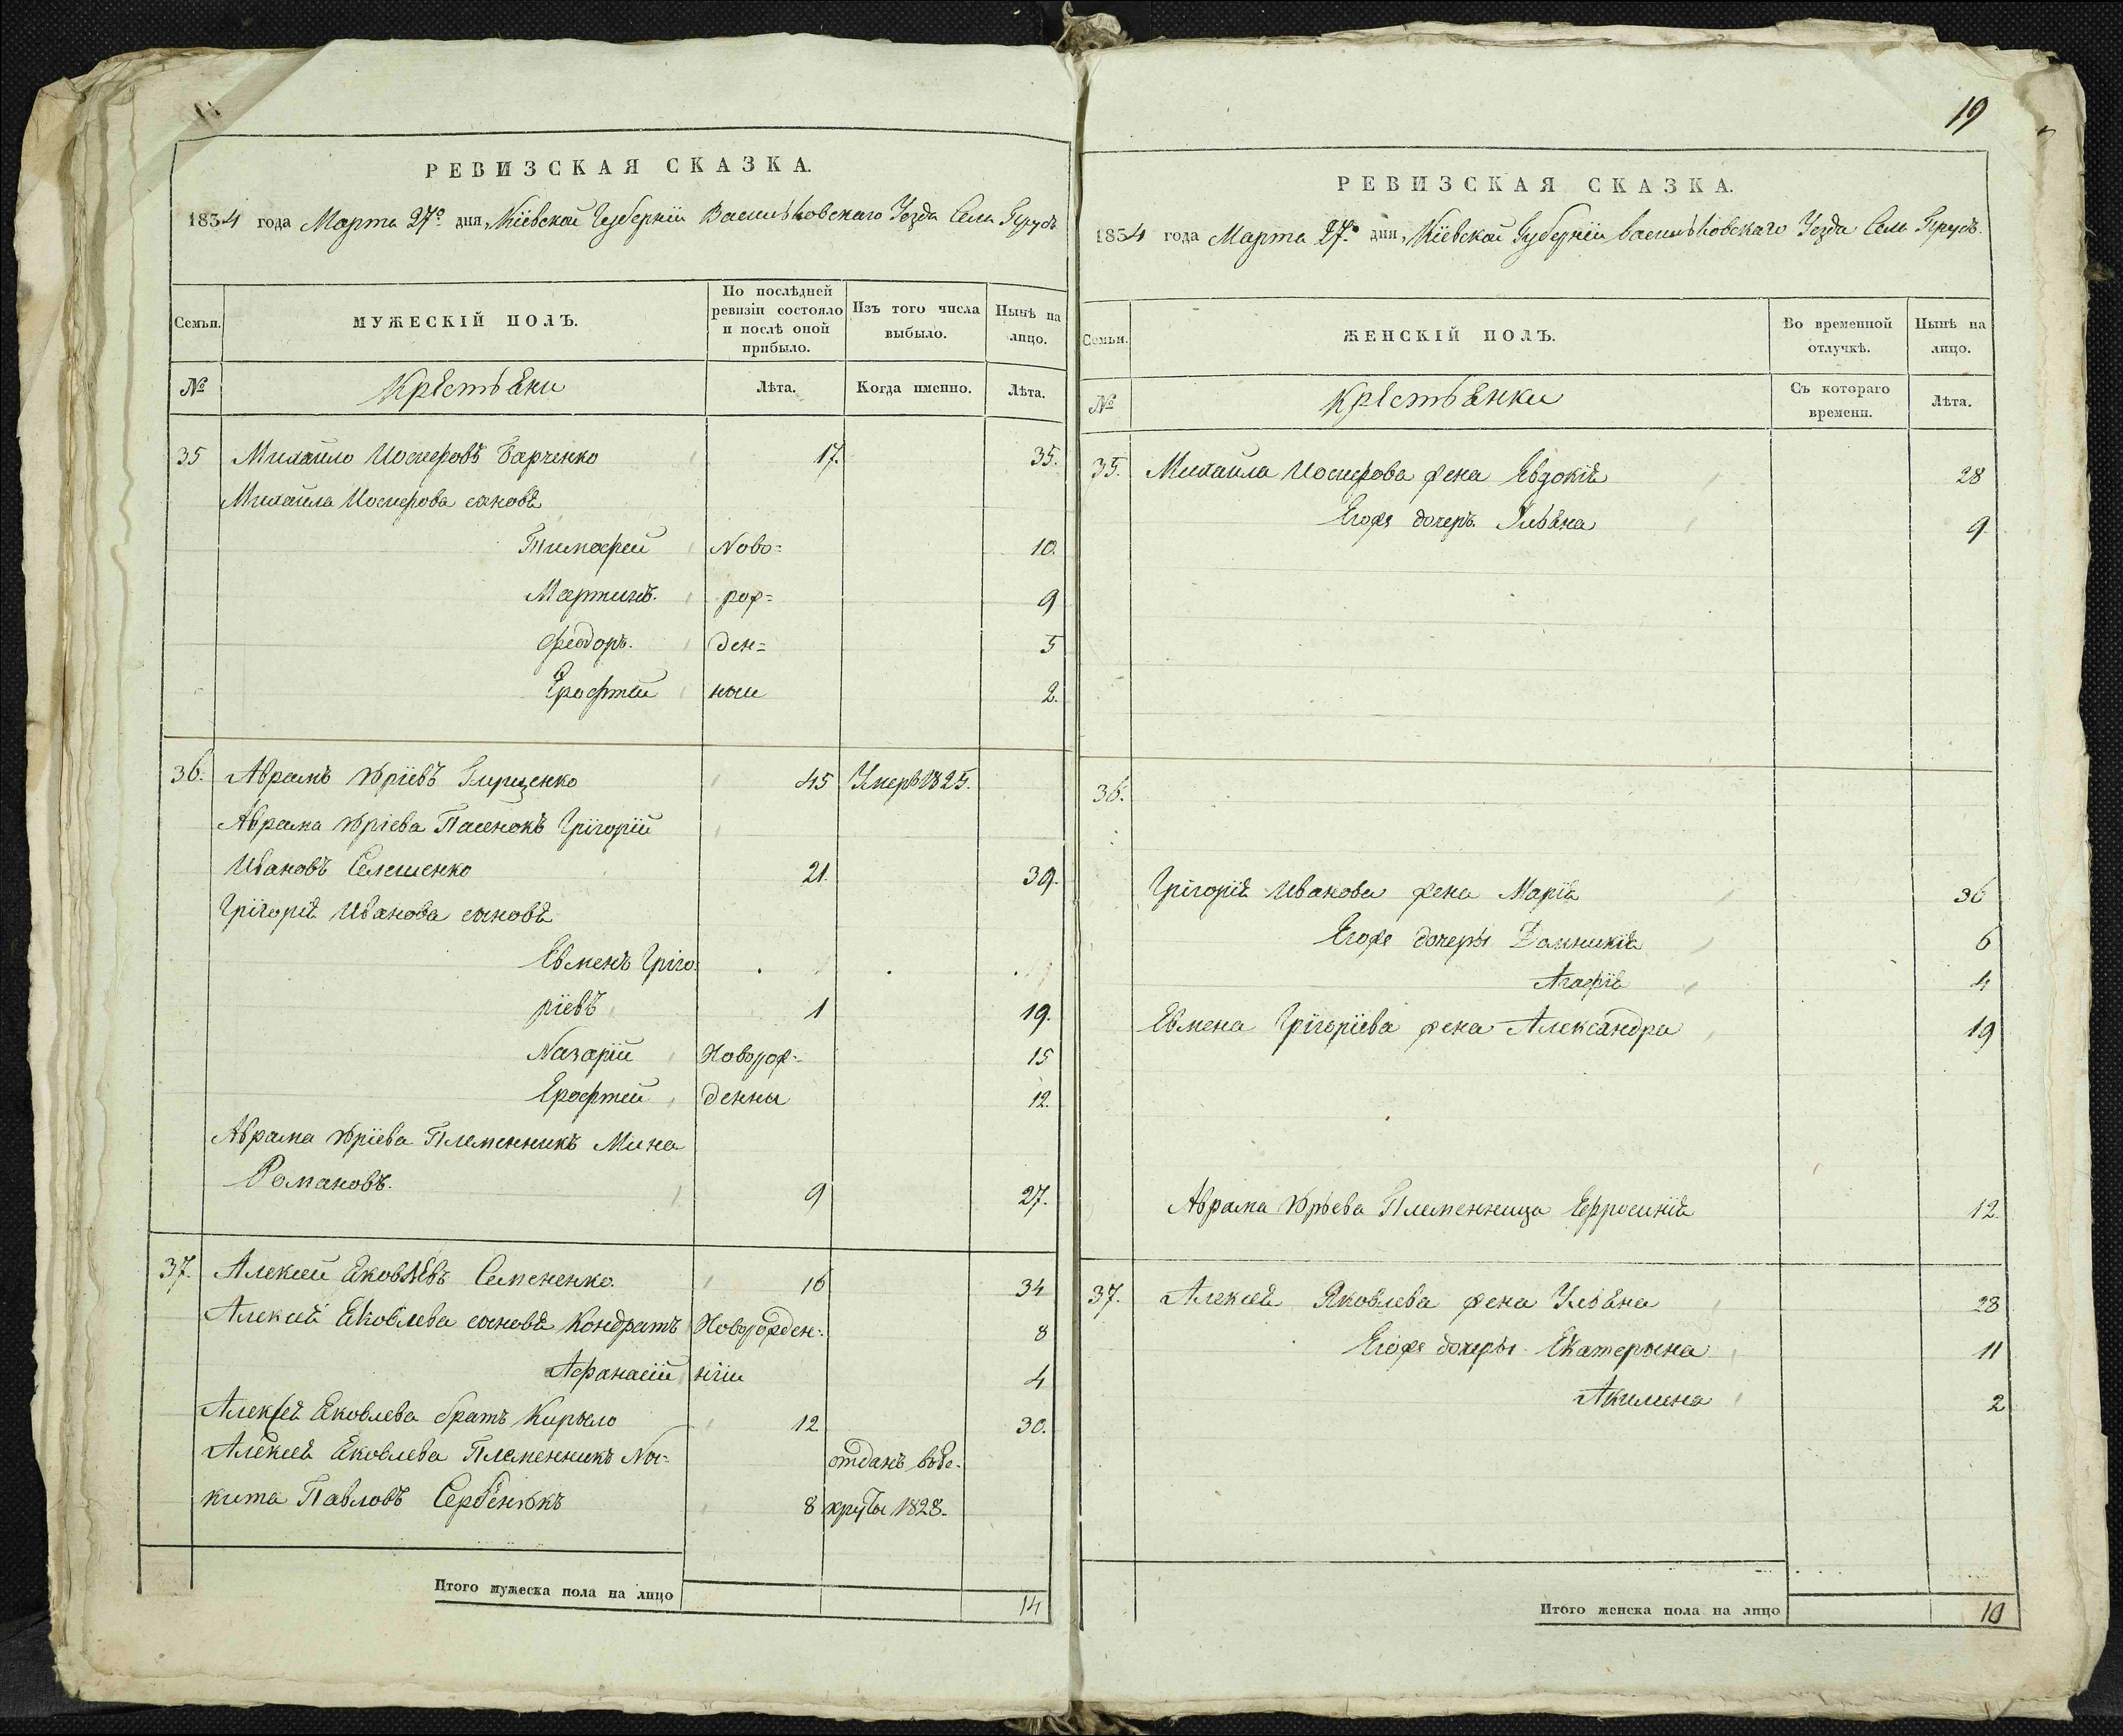 19
РЕВИЗСКАЯ СКАЗКА.
1834 года Марта 27го дня, Кіевской Губерніи Васильковскаго Уезда Села
Семьи.
МУЖЕСКІЙ ПОЛЪ.
По послѣдней ревизіи состояло и послѣ оной прибыло.
Изъ того числа выбыло.
Нынѣ на лицо.
№
Крестьяни
Лѣта.
Когда именно.
Лѣта.
35 Михайло Иосифовъ Барченко 17. 35.
Михайла Иосифова сыновя
Тимофей Ново= 10.
Мартинъ. рож= 9
Феодоръ. ден= 5
Ерофтей ныи 2.
36. Аврамъ Юріевъ 45 Умеръ 1825.
Аврама Юріева Пасенокъ Грїгорїй
Ивановъ Селешенко 21. 39.
Грїгорїя Иванова сыновя
Евменъ Грїго
рїевъ 1 19.
Назарїй Новорож- 15
Ерофтей денны 12.
Аврама Юрїева Племенникъ Мина
Романовъ. 9 27.
37. Алексей Яковлевъ Семененко. 16 34
Алексея Яковлева сыновя Кондратъ Новорожден- 8
Афанасїй нїи 4
Алексея Яковлева братъ Кирыло 12 30.
Алексея Яковлева Племенникъ Ны- отданъ въ Ре-
кита Павловъ Сербенюкъ 8 круты 1828.
Итого мужеска пола на лицо 14
РЕВИЗСКАЯ СКАЗКА.
1834 года Марта 27го дня, Кіевской Губерніи Васильковскаго Уезда Села
Семьи.
ЖЕНСКІЙ ПОЛЪ.
Во временной отлучкѣ.
Нынѣ на лицо.
№
Крестьянки
Съ котораго времени.
Лѣта.
35. Михайла Иосифова жена Евдокїя 28
Егожъ дочеръ Ульяна 9.
36.
Грїгорїя Иванова жена Марїя 36
Егожъ дочеры Домникїя 6
Агафїя 4
Евмена Грїгорїева жена Александра 19
Аврама Юрьева Племенница Ефросинїя 12.
37. Алексея Яковлева жена Ульяна 28
Егожъ дочеры Екатерына 11
Акилина 2
Итого женска пола на лицо 10